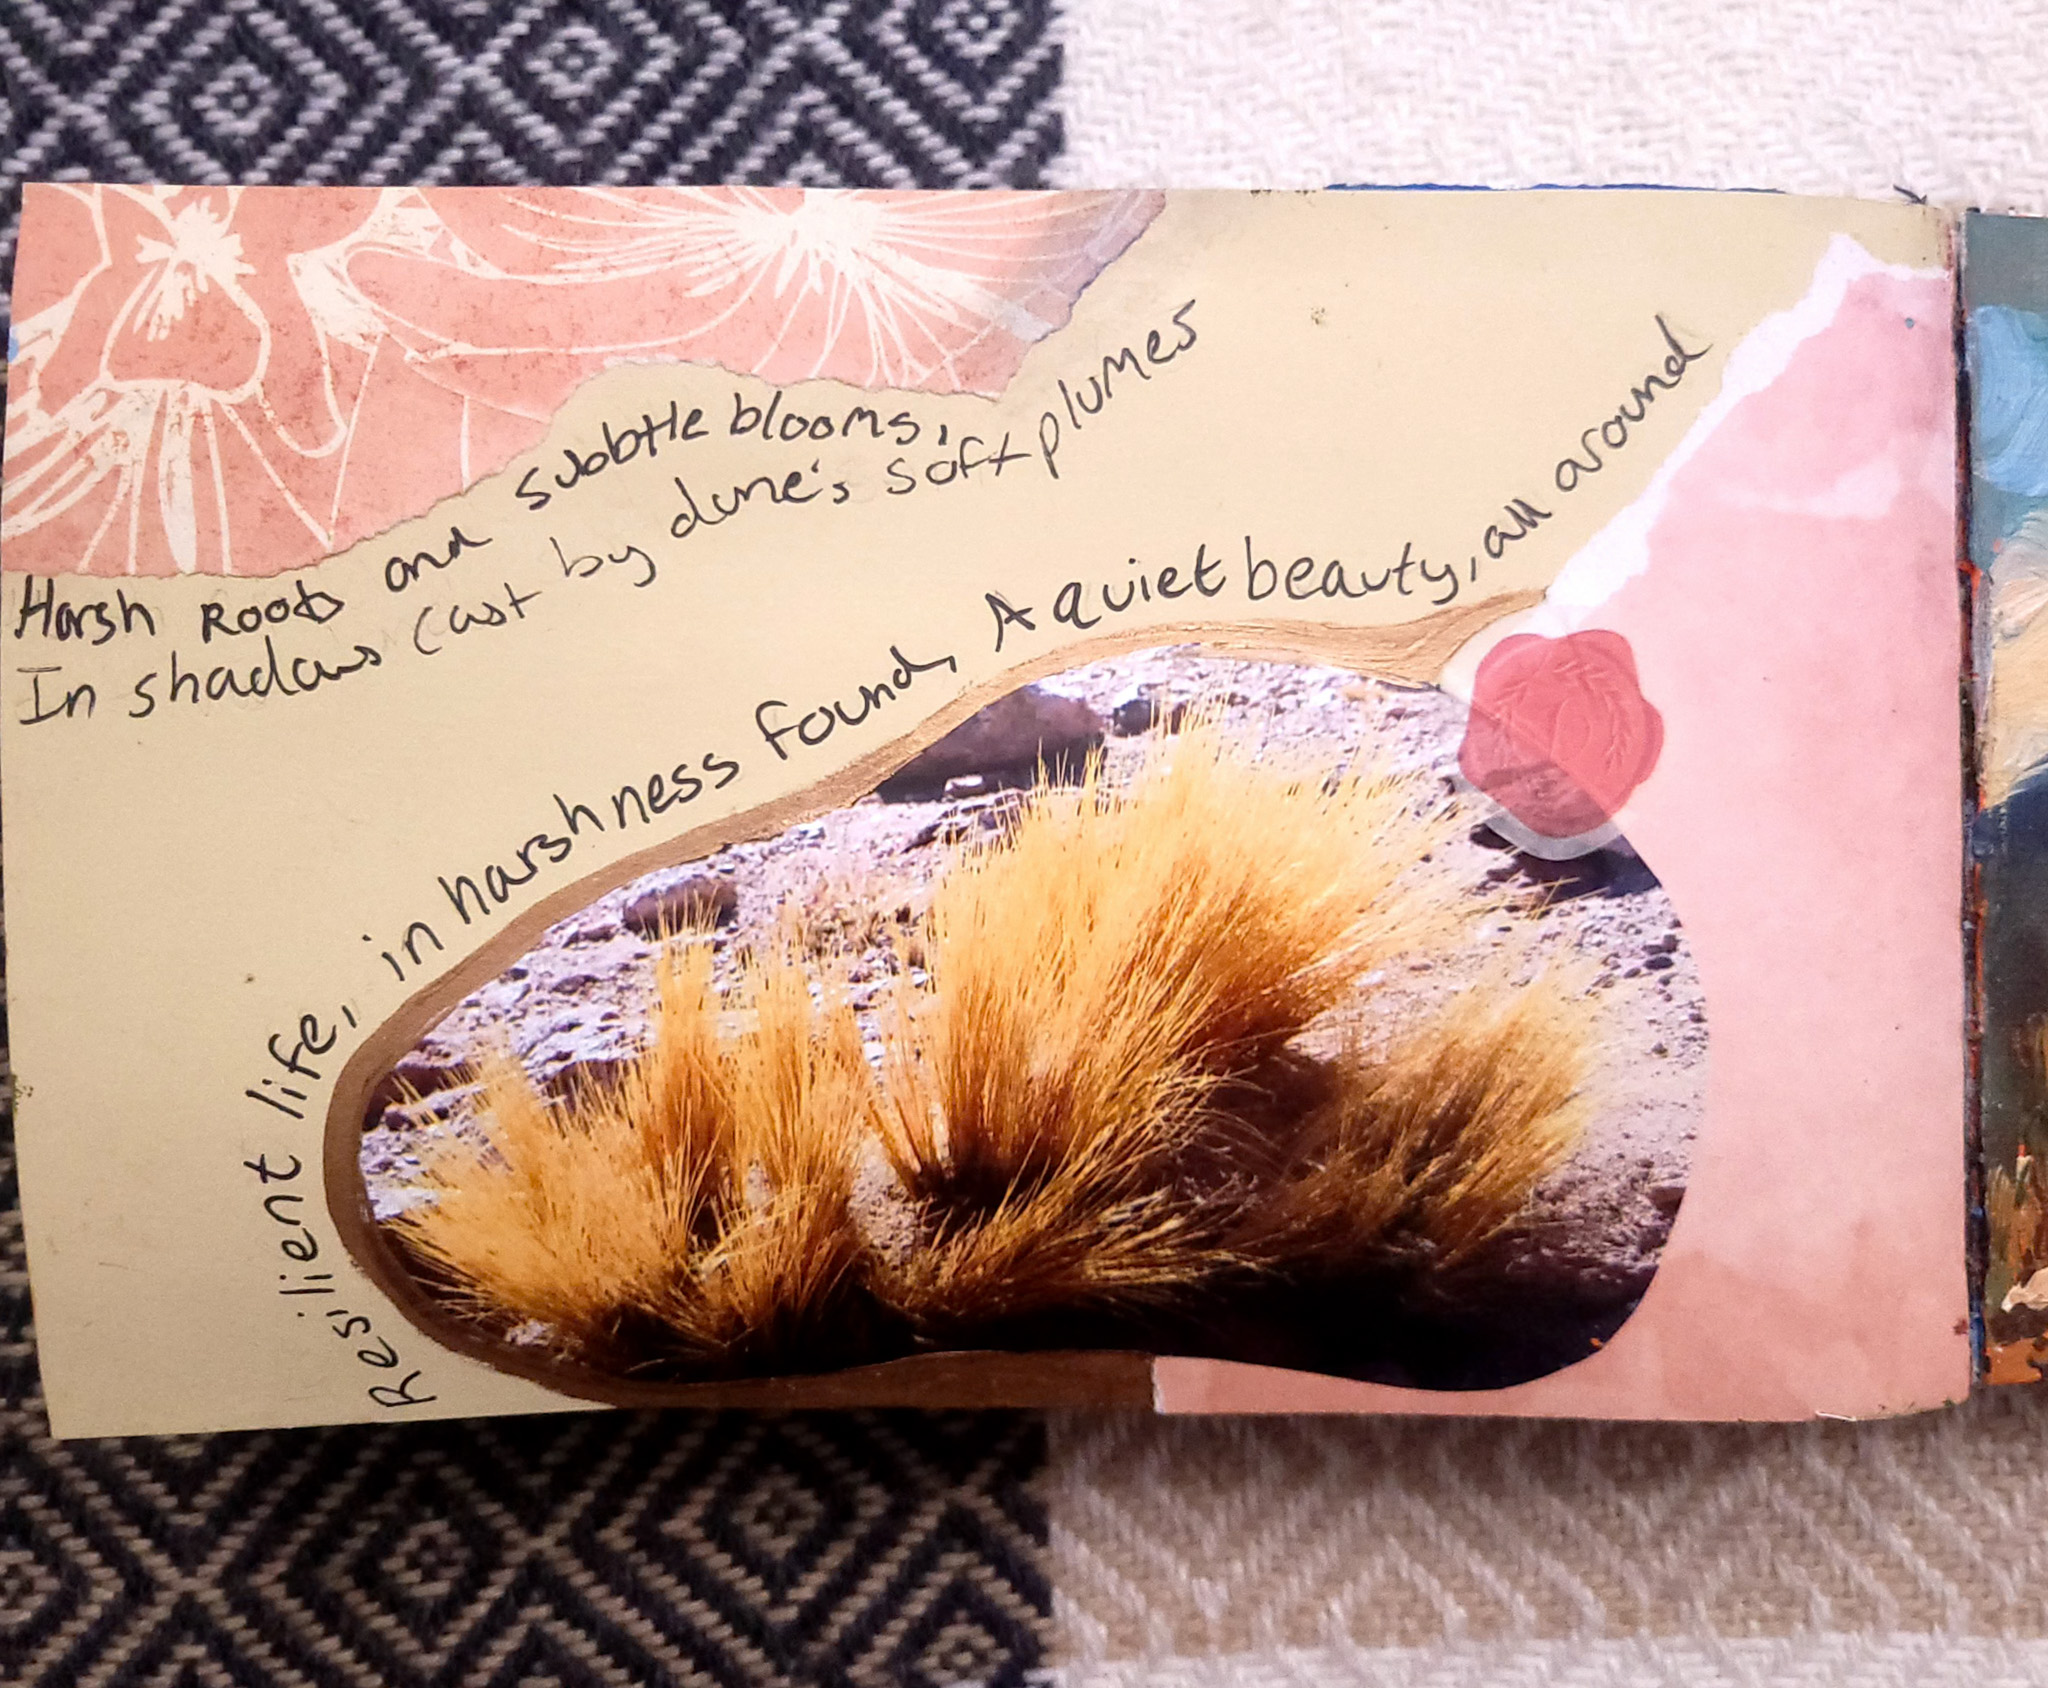 Harsh Roots and subbtle blooms,
In shadows cast by dune's soft plumes
Resilient life, in harshness found, A quiet beauty, all around